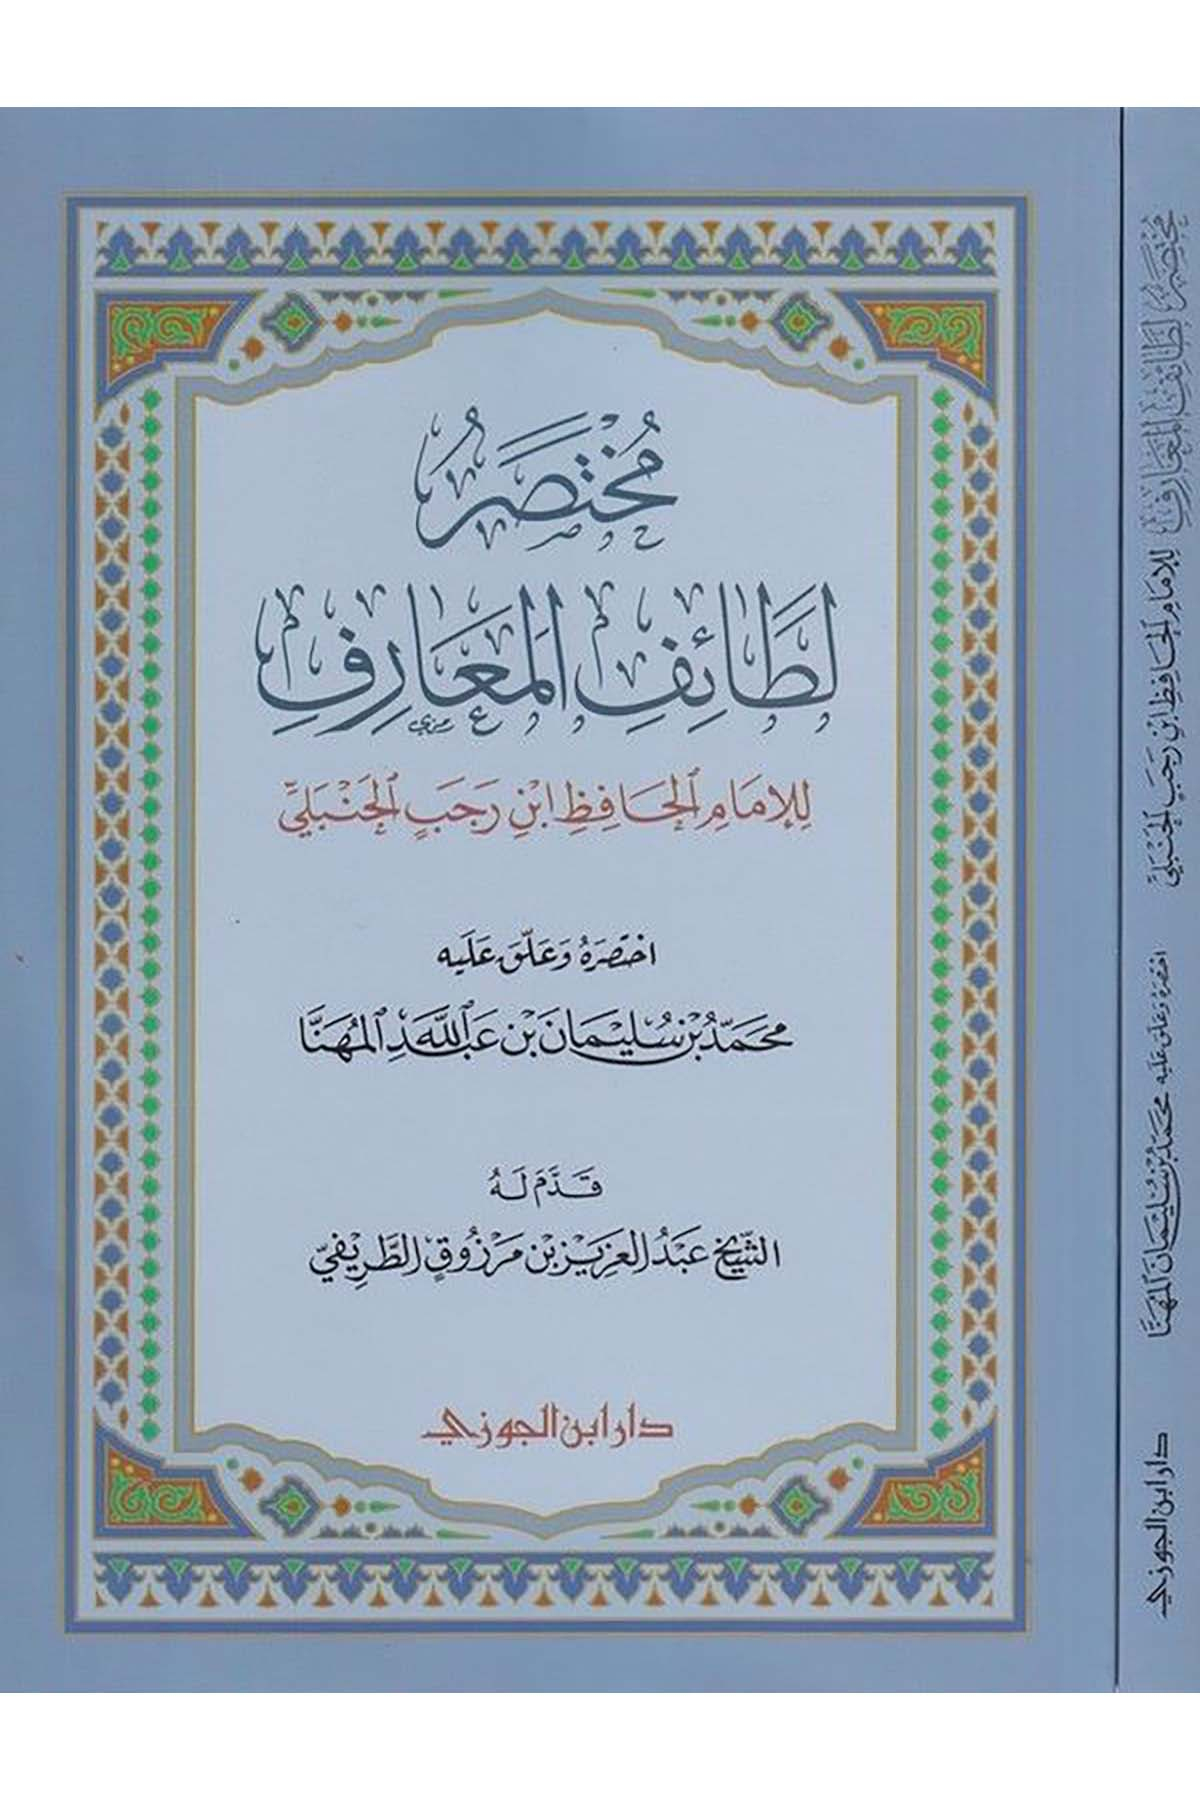 مُخْتَصَرُ
لَطَائِفِ المَعَارِفِ
لِلإِمَامِ الحَافِظِ ابْنِ رَجَبٍ الحَنْبَلِيِّ
اخْتَصَرَهُ وَعَلَّقَ عَلَيْهِ
مُحَمَّدُ بْنُ سُلَيْمَانَ بْنِ عَبْدِ اللَّهِ المُهَنَّا
قَدَّمَ لَهُ
الشَّيْخُ عَبْدُ العَزِيزِ بْنُ مَرْزُوقٍ الطَّرِيفِيُّ
دار ابن الجوزي
مُخْتَصَرُ لَطَائِفِ المَعَارِفِ لِلإِمَامِ الحَافِظِ ابْنِ رَجَبٍ الحَنْبَلِيِّ
اخْتَصَرَهُ وَعَلَّقَ عَلَيْهِ مُحَمَّدُ بْنُ سُلَيْمَانَ المُهَنَّا
دار ابن الجوزي